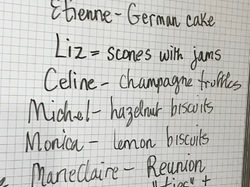 Etienne - German cake
Liz = scones with jams
Celine - champagne truffles
Michel - hazelnut biscuits
Monica - lemon biscuits
MarieClaire - Reunion
"tips" +